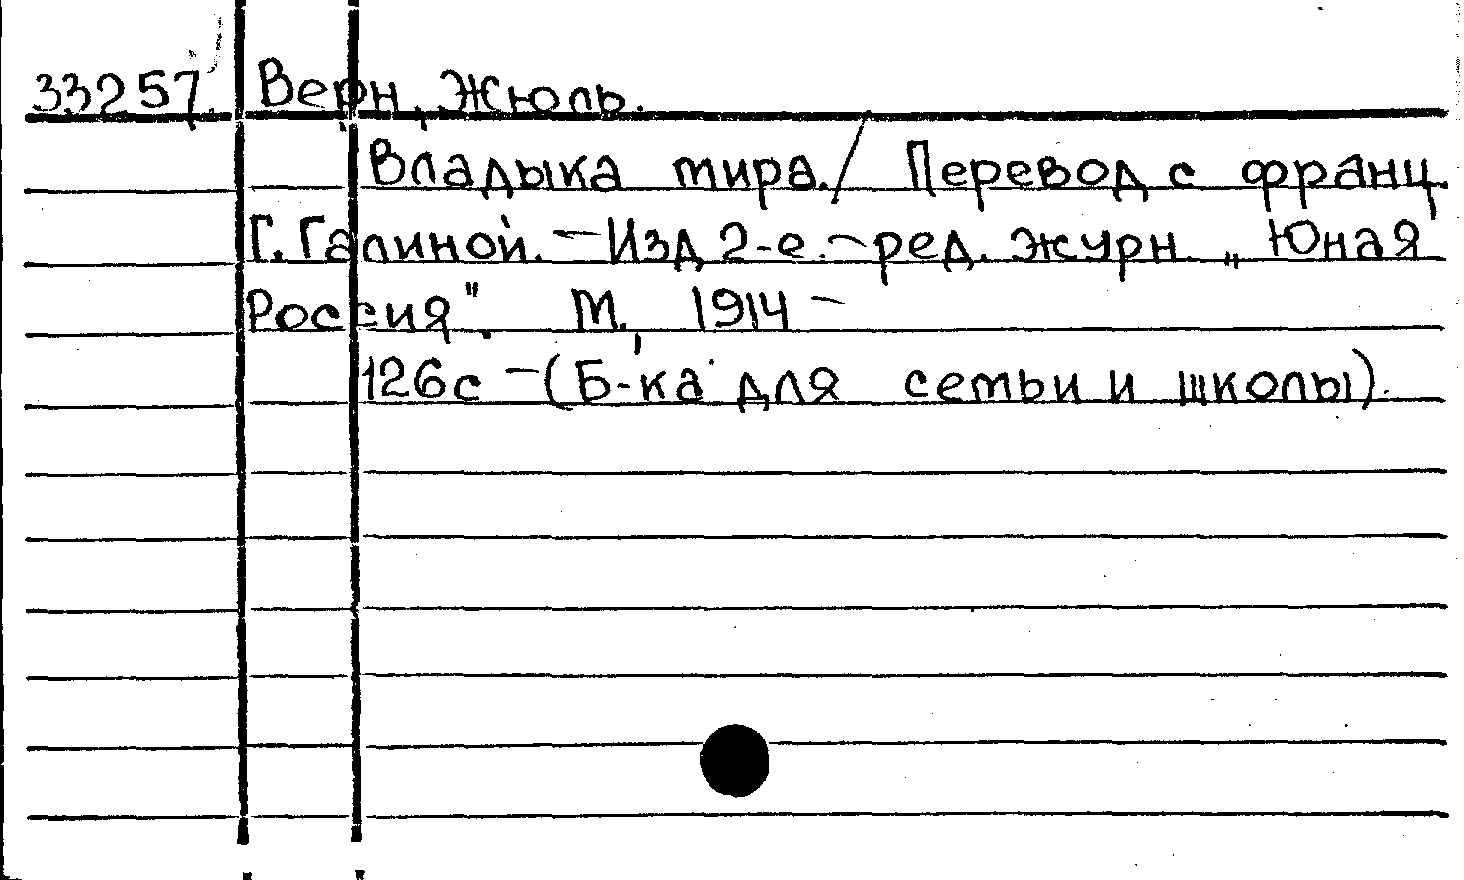 33257. Верн, Жюль.
Владыка мира. / Перевод с франц.
Г. Галиной. – Изд 2-е. – ред. журн. „Юная
Россия". М., 1914 –
126с – (Б-ка для семьи и школы).